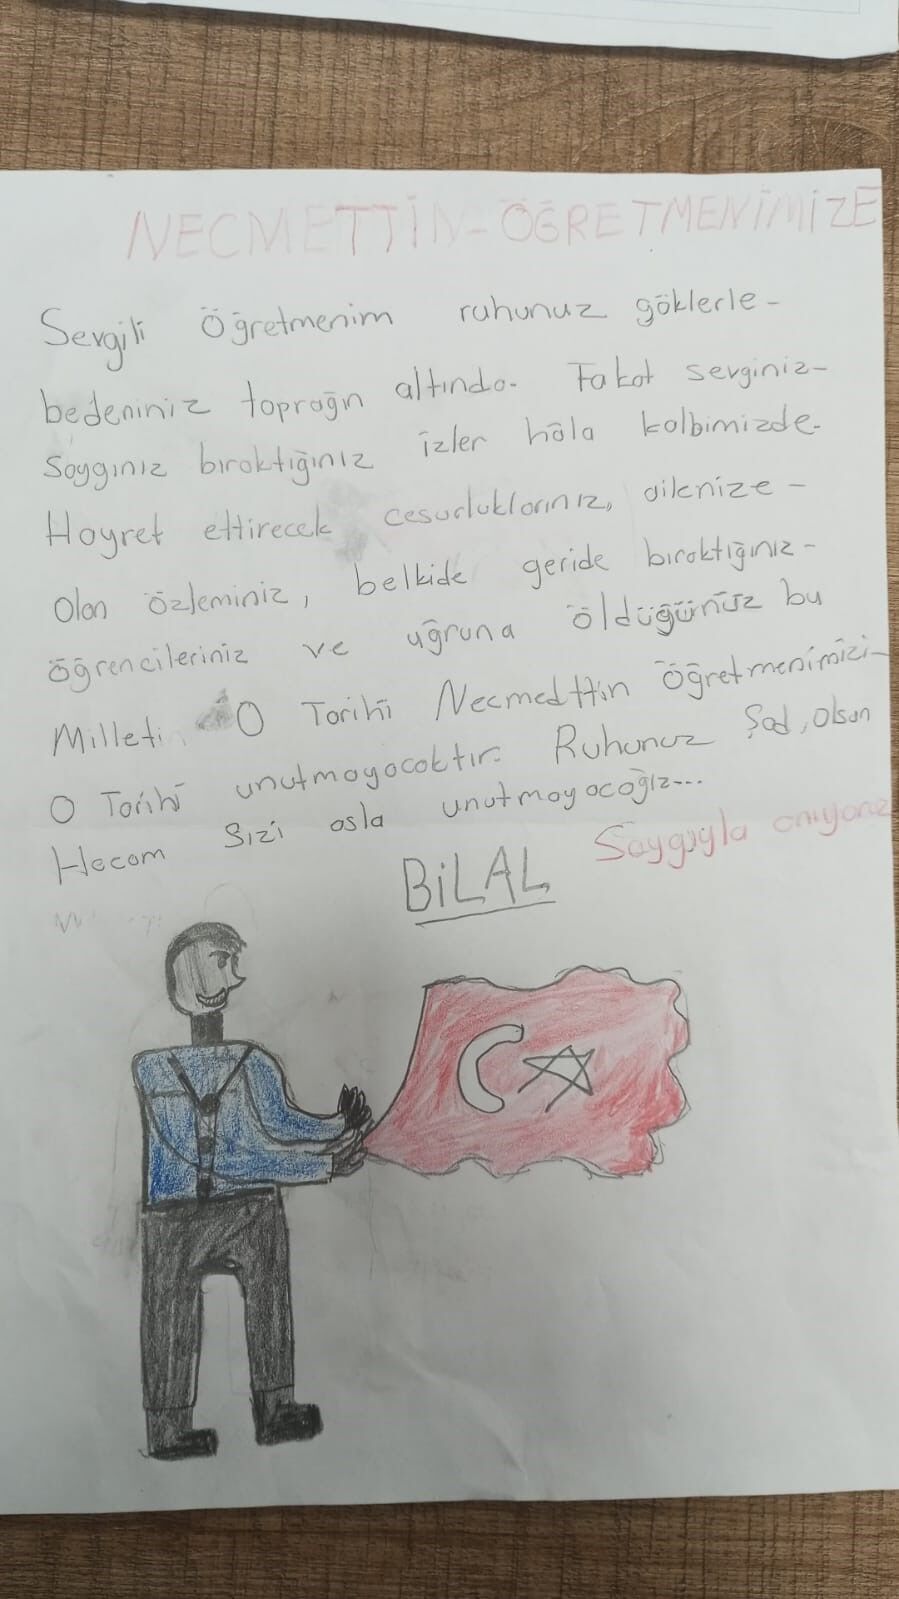 NECMETTİN-ÖĞRETMENİMİZE
Sevgili Öğretmenim ruhunuz göklerle-
bedeniniz toprağın altında. Fakat sevginiz-
Saygınız bıraktığınız izler hâla kalbimizde.
Hayret ettirecek cesurluklarınız, ailenize-
Olan özleminiz, belkide geride bıraktığınız-
öğrencileriniz ve uğruna öldüğünüz bu
Milleti. O Tarihî Necmedttin öğretmenimizi-
O Tarihî unutmayacaktır. Ruhunuz Şad, olsun
Hocam Sizi asla unutmayacağız...
Saygıyla anıyoruz
BİLAL